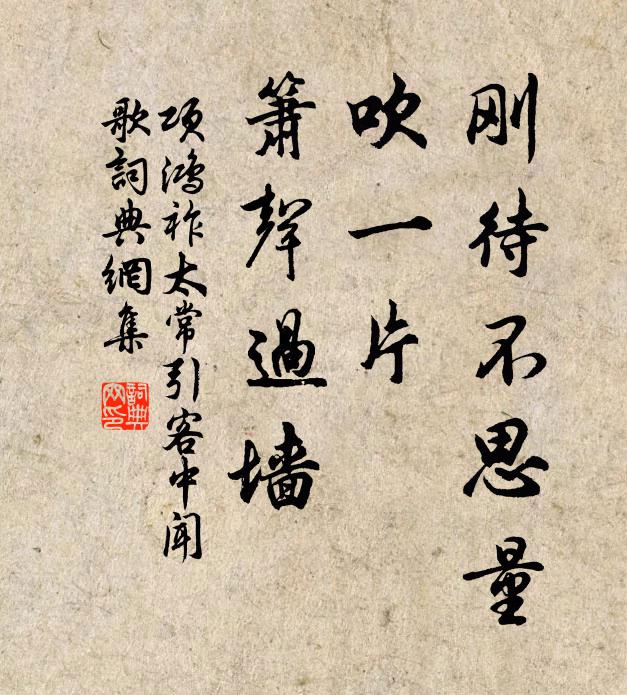 刚待不思量
吹一片
簫聲過墙
项鴻祚太常引客中聞
歌詞典網集
詞典
网印